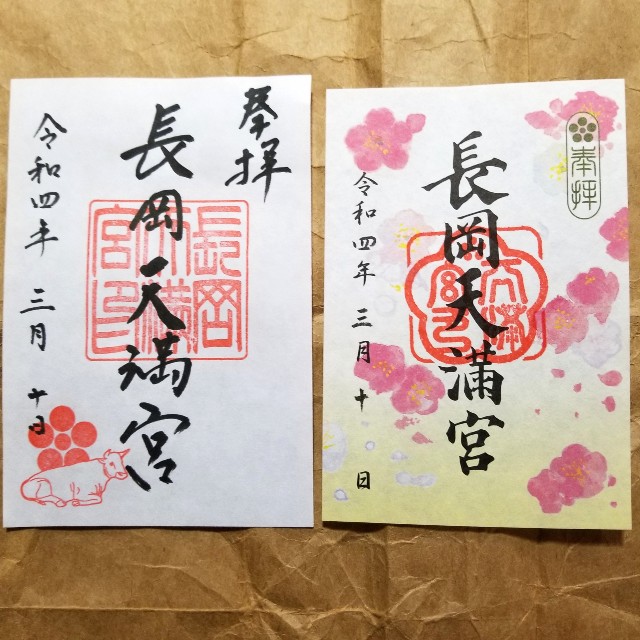 奉拝
長岡天満宮
長岡天満宮印
令和四年 三月 十日
奉拝
長岡天満宮
令和四年 三月 十 日